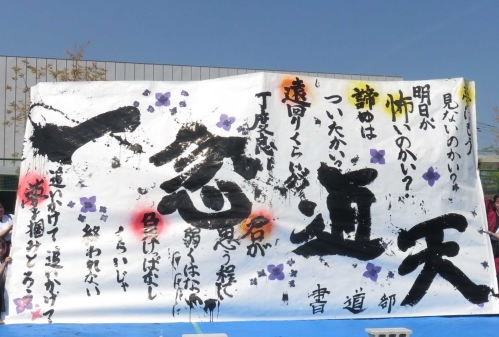 夢はもう
見ないのかい?
明日が
怖いのかい?
諦めは
ついたかい?
遠回りくらいが
丁度良い
君が
思う程に
弱くはない
くらいじゃ
終われない
追いかけて追いかけて
夢を掴みとろう
一念通天
書道部